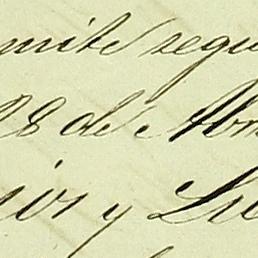 mite segu
28 de Abr
ior y Lu